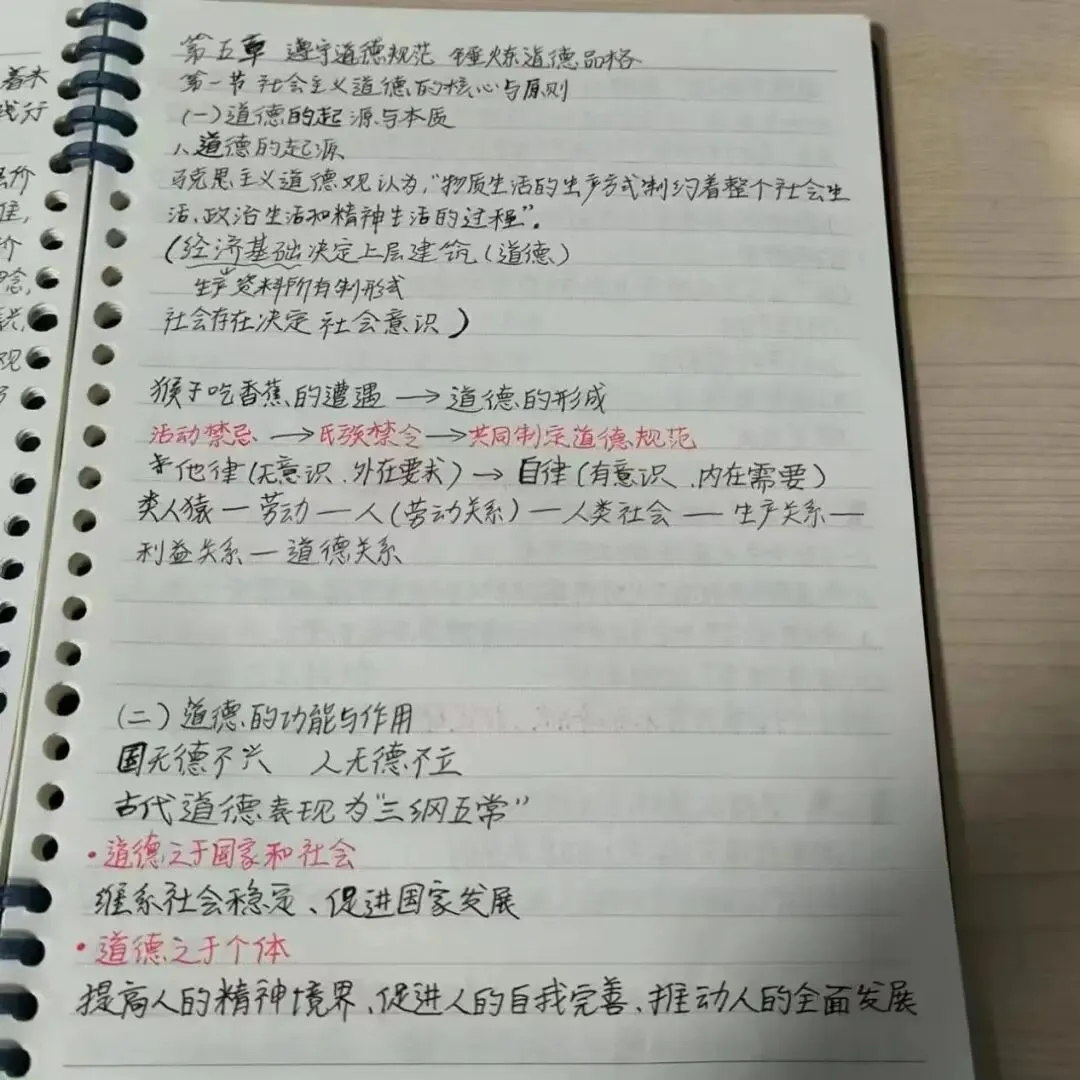 着来
践行
价
值,
价
念,
观
第五章 遵守道德规范 锤炼道德品格
第一节 社会主义道德的核心与原则
(一)道德的起源与本质
1、道德的起源
马克思主义道德观认为,“物质生活的生产方式制约着整个社会生
活、政治生活和精神生活的过程”。
(经济基础决定上层建筑(道德)
生产资料所有制形式
社会存在决定社会意识)
猴子吃香蕉的遭遇→道德的形成
活动禁忌→氏族禁令→共同制定道德规范
他律(无意识、外在要求)→自律(有意识、内在需要)
类人猿—劳动—人(劳动关系)—人类社会—生产关系—
利益关系—道德关系
(二)道德的功能与作用
国无德不兴 人无德不立
古代道德表现为“三纲五常”
·道德之于国家和社会
维系社会稳定、促进国家发展
·道德之于个体
提高人的精神境界、促进人的自我完善、推动人的全面发展